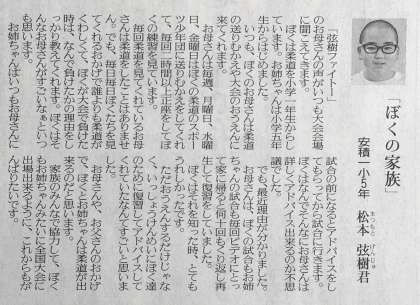 「ぼくの家族」
安積一小5年　松本　弦樹君
まつもと　げんじゅ
「弦樹ファイトー」
のお母さんの声がいつも大会会場
に聞こえてきます。
ぼくは柔道を小学一年生からし
ています。お姉ちゃんは小学五年
生からはじめました。
いつも、ぼくのお母さんは柔道
の送りむかえや大会のおうえんに
来てくれます。
お母さんは毎週、月曜日、水曜
日、金曜日はぼくの柔道のスポー
ツ少年団に送りむかえをしてくれ
て、毎回二時間以上正座をしてぼく
の練習を見ています。
毎回柔道を見てくれているお母
さんは柔道をしたことはありませ
ん。でも、毎日毎日ぼくたちを見
てくれるおかげで誰よりも柔道が
くわしくて、ぼくが大会で負けた
時は、なんで負けたかの理由をし
っかり教えてくれます。ぼくはそ
んなお母さんがすごいなあといつ
も思います。
お姉ちゃんはいつもお母さんに
試合の前になるとアドバイスをし
てもらってから試合に行きます。
ぼくはなんでそんなにお母さんは
詳しくアドバイス出来るのか不思
議でした。
でも最近理由が分かりました。
お母さんは、ぼくの試合もお姉
ちゃんの試合も毎回ビデオにとっ
て家に帰ると何十回もくり返し再
生して復習をしていました。
ぼくはそれを知った時、とても
うれしかったです。
ただおうえんするだけじゃな
く、いっしょうけんめいにぼく達
のために復習してアドバイスして
くれていたなんてすごいと思いま
す。
お母さんや、お父さんのおかげ
で、ぼくとお姉ちゃんは柔道が出
来るのだと思います。
家族のみんなで協力して、ぼく
もお姉ちゃんみたいに全国大会に
出場出来るように、これからもが
んばりたいです。